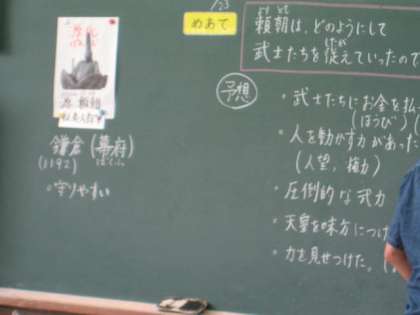 1/23
めあて
頼朝は、どのようにして
武士たちを従えていったので
予想
・武士たちにお金を払
(ほうび)
・人を動かす力があった
(人望、権力)
・圧倒的な武力
・天皇を味方につけ
・力を見せつけた。
源 頼朝
鎌倉(幕府)
ばくふ
(1192)
○守りやすい